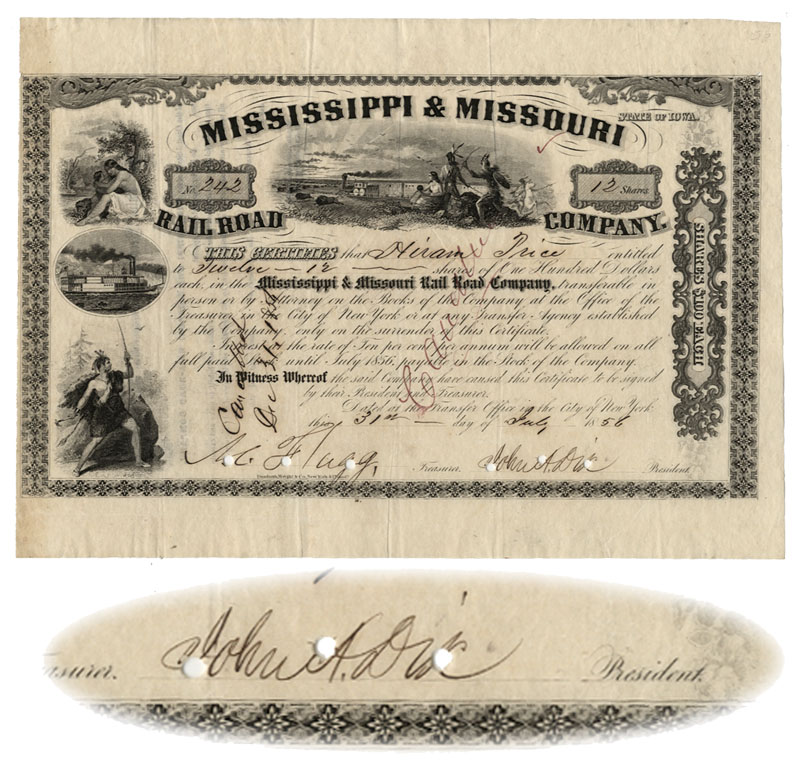 MISSISSIPPI & MISSOURI
STATE OF IOWA.
No. 242
12 Shares
RAIL ROAD COMPANY.
THIS CERTIFIES that Hiram Price entitled
to Twelve — 12 — shares of One Hundred Dollars
each, in the Mississippi & Missouri Rail Road Company, transferable in
person or by Attorney on the Books of the Company at the Office of the
Treasurer in the City of New York or at any Transfer Agency established
by the Company, only on the surrender of this Certificate.
Interest at the rate of Ten per cent per annum will be allowed on all
full paid until July 1856, payable in the Stock of the Company.
In Witness Whereof the said Company have caused this Certificate to be signed
by their President and Treasurer.
Dated at the Transfer Office in the City of New York
this 31st — day of July 1856
A.C. Flagg, Treasurer. John A. Dix President.
SHARES $100 EACH
Cancelled
John A. Dix President.